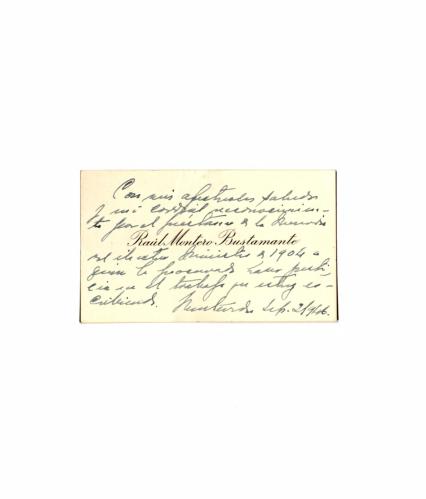 Con mis afectuosos saludos
y mi cordial reconocimien-
to por el préstamo de la Memoria
Raúl Montero Bustamante
del ilustre Ministro de 1904 a
quien he procurado hacer justi-
cia en el trabajo que estoy es-
cribiendo. Montevideo Set. 2/946.